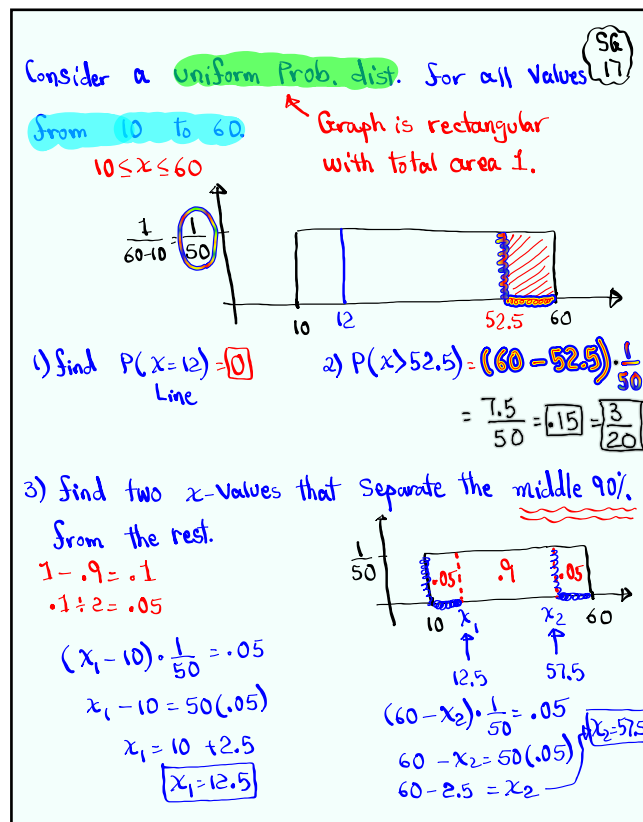 SG 17
Consider a uniform Prob. dist. for all Values
from 10 to 60.
Graph is rectangular
with total area 1.
10 ≤ x ≤ 60
1/(60-10) = 1/50
10 12 52.5 60
1) find P(x=12) = 0
Line
2) P(x>52.5) = (60 - 52.5) · 1/50
= 7.5/50 = .15 = 3/20
3) find two x-Values that Separate the middle 90%.
from the rest.
1 - .9 = .1
.1 ÷ 2 = .05
1/50
.05 .9 .05
10 x₁ x₂ 60
12.5 57.5
(x₁ - 10) · 1/50 = .05
x₁ - 10 = 50(.05)
x₁ = 10 + 2.5
x₁ = 12.5
(60 - x₂) · 1/50 = .05
60 - x₂ = 50(.05)
60 - 2.5 = x₂
x₂ = 57.5